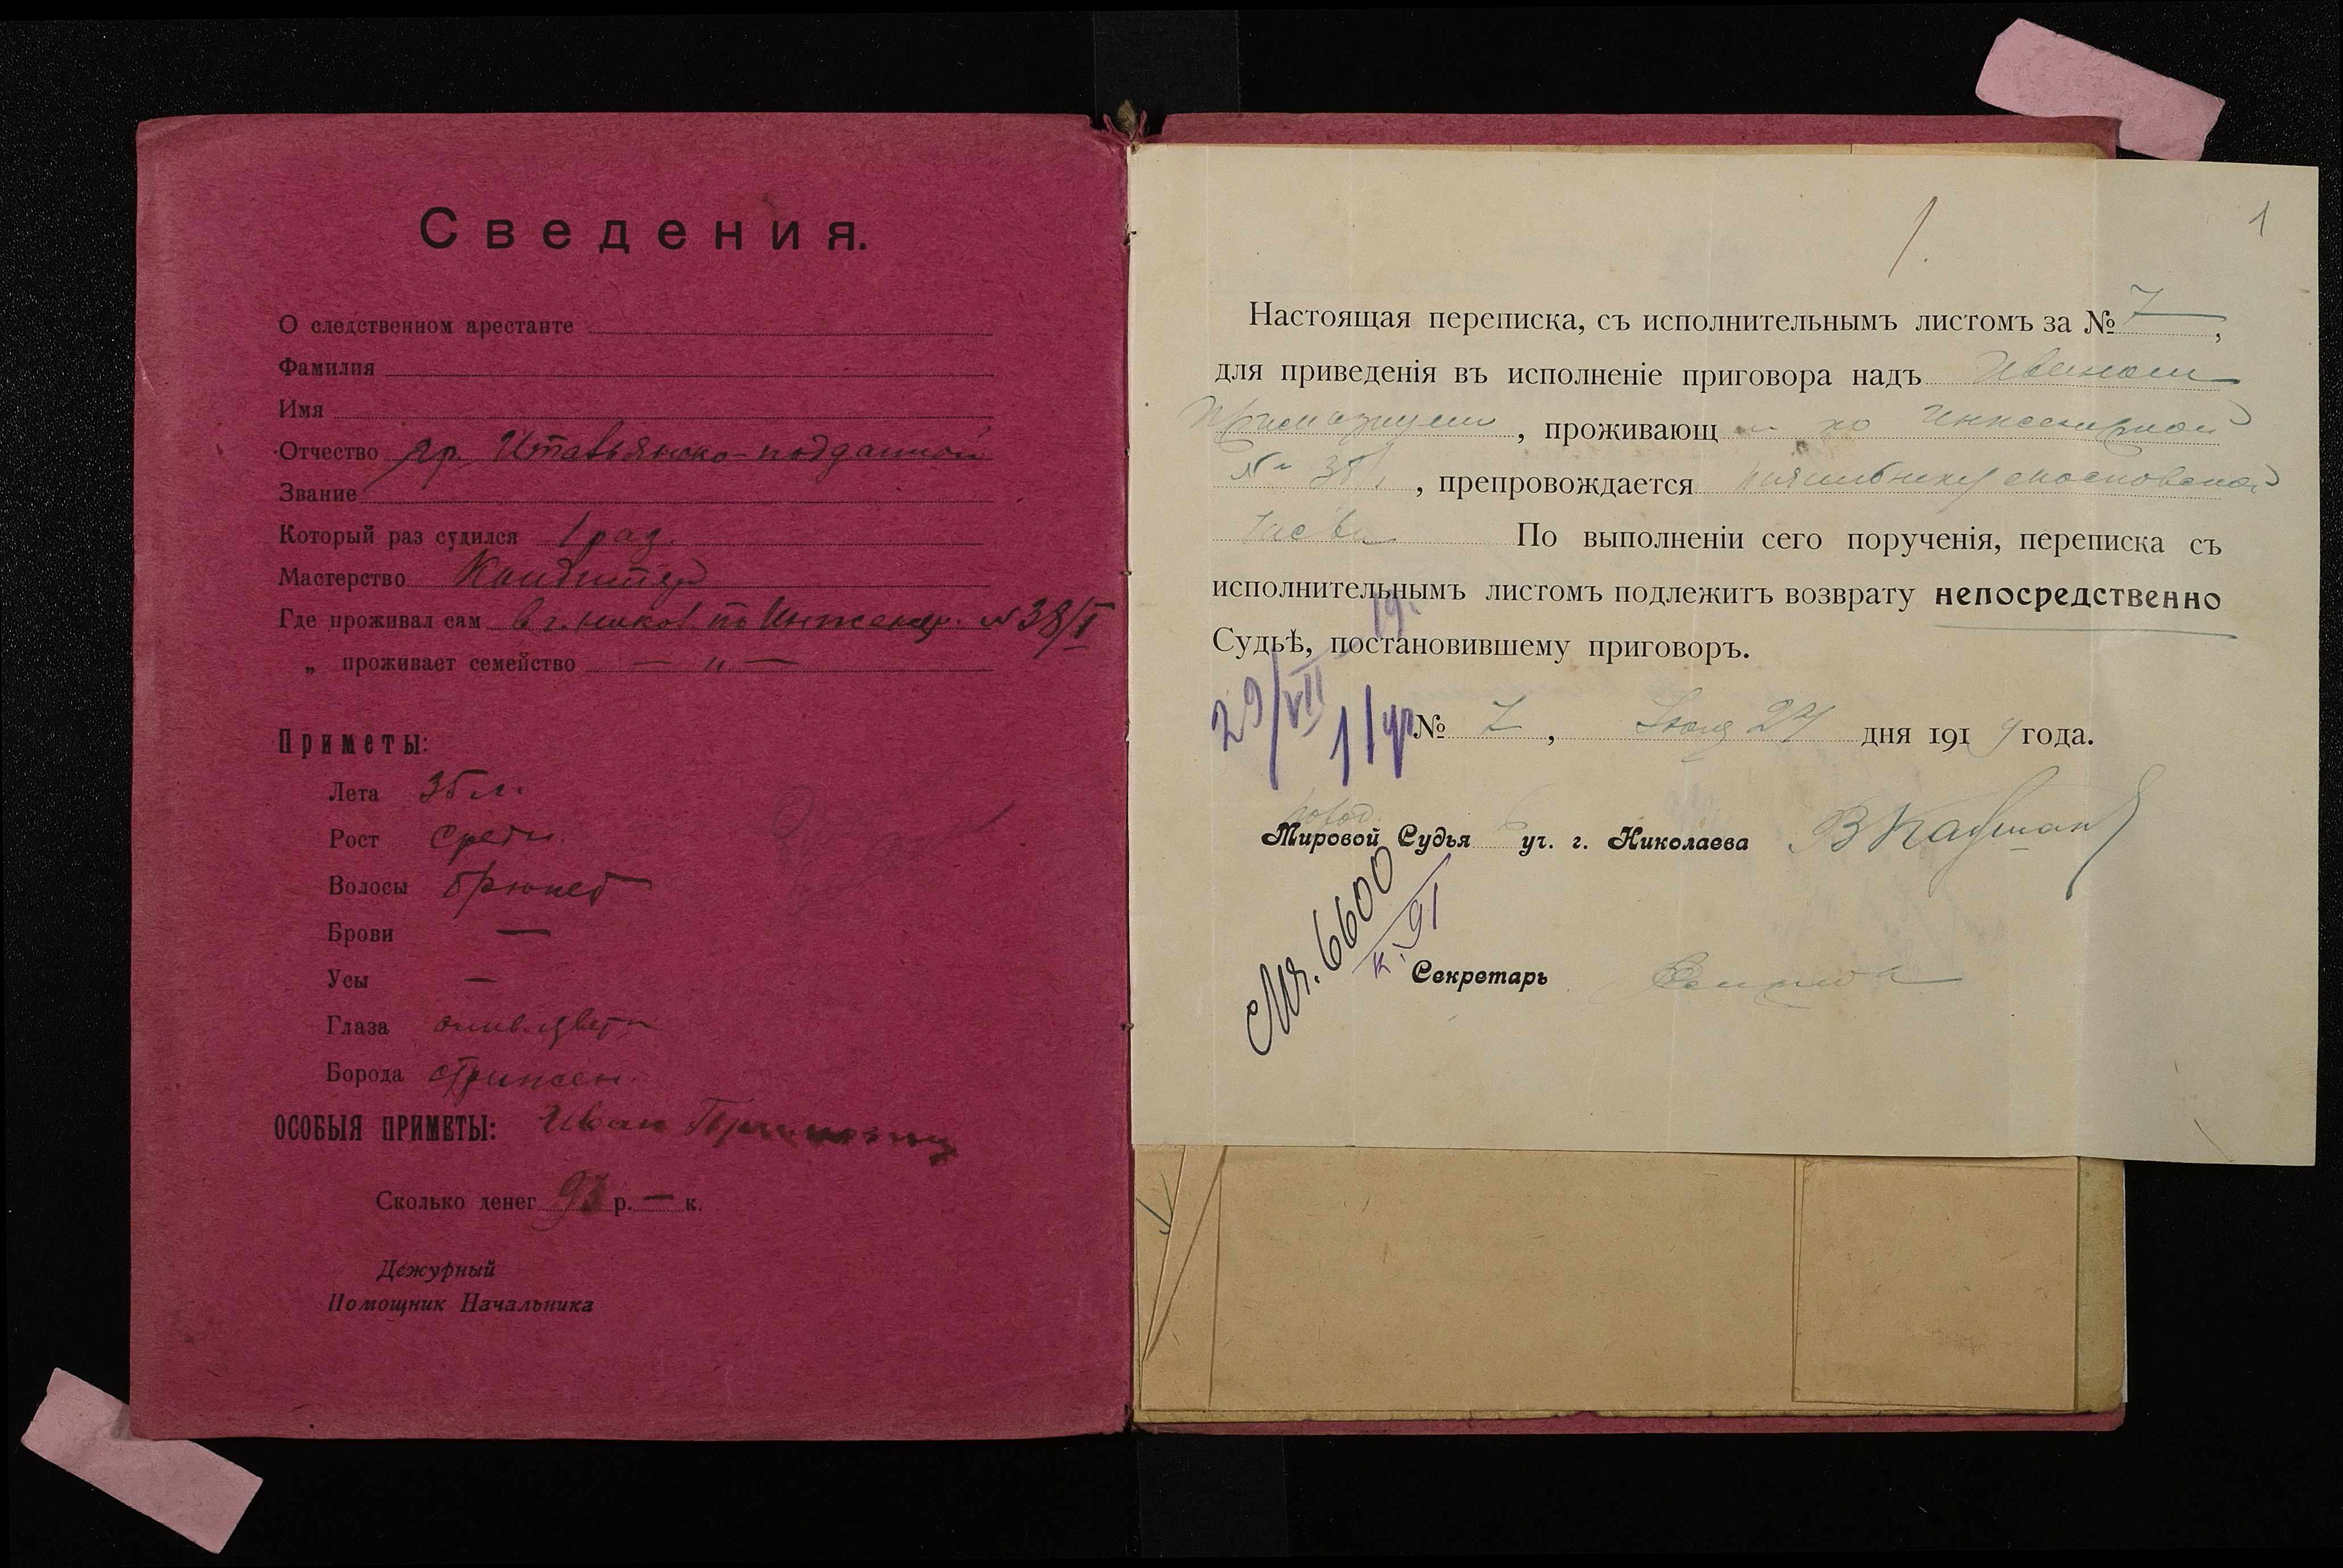 Сведения.
О следственном арестанте
Фамилия
Имя
Отчество гр. Итальянско-подданной
Звание
Который раз судился 1 раз.
Мастерство Кондитер
Где проживал сам в г. Никол по Инженер. № 38/I
„ проживает семейство — „ —
Приметы:
Лета 35 л.
Рост средн.
Волосы брюнет
Брови —
Усы —
Глаза
Борода стрижен.
ОСОБЫЯ ПРИМЕТЫ: Иван
Сколько денег р. — к.
Дежурный
Помощник Начальника
1
1.
Настоящая переписка, съ исполнительнымъ листомъ за № 7,
для приведенія въ исполненіе приговора надъ Иваном
, проживающ по Инженерной
№ 38/1, препровождается начальнику московской
части По выполненіи сего порученія, переписка съ
исполнительнымъ листомъ подлежитъ возврату непосредственно
Судьѣ, постановившему приговоръ.
19
29/VII
№ 7, Июля 27 дня 1919 года.
Мировой Судья 6 уч. г. Николаева
6600
91
Секретарь